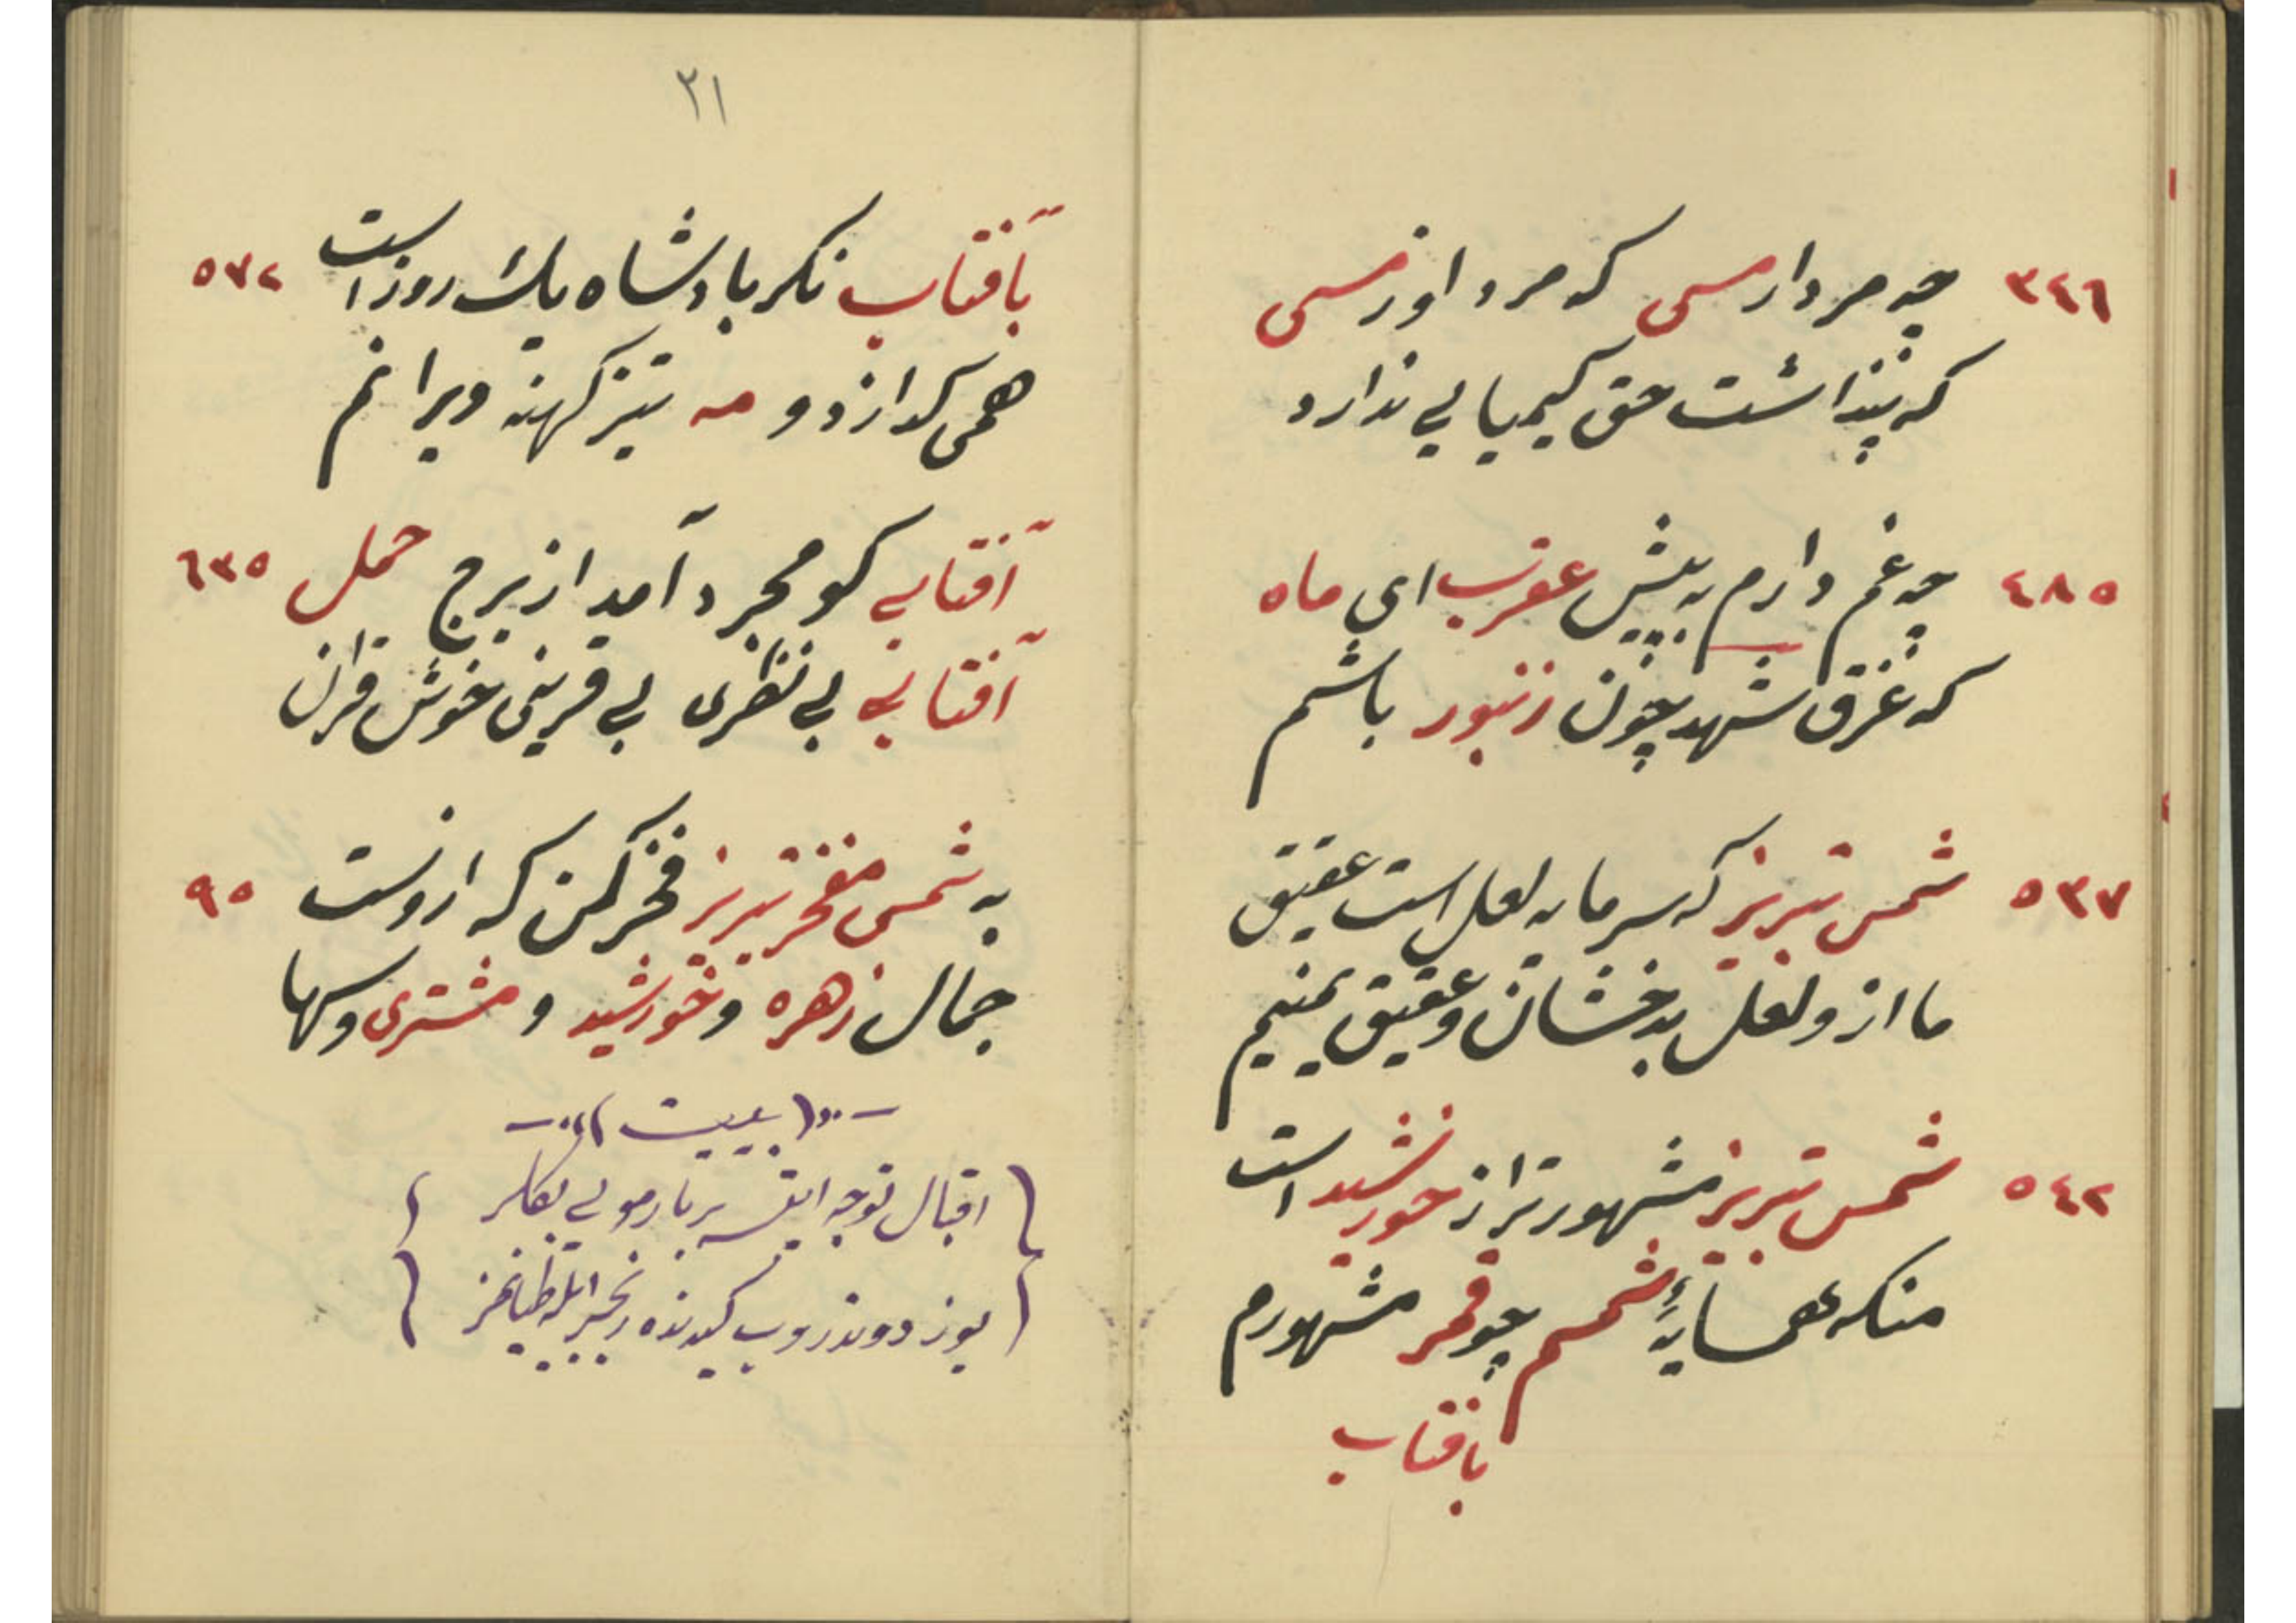 ٣٤٦ چه مردار مسی که مرد او ز مسی
که پنداشت حق کیمیایی ندارد
٤٨٥ چه غم دارم به پیش عقرب ای ماه
که غرق شهد چون زنبور باشم
٥٣٧ شمس تبریز که سرمایه لعل است عقیق
ما از و لعل بدخشان و عقیق یمنیم
٥٤٢ شمس تبریز مشهورتر از خورشید است
منکه همسایهٔ شمسم چو قمر مشهورم
بآفتاب
٣١
بآفتاب نکر بادشاه یک روز است ٥٧٢
همی کدازد و مه تیز کهنه ویرانم
آفتابی کو مجرد آمد از برج حمل ٦٣٥
آفتابی بی نظری بی قرینی خوش قران
به شمس مفخر تبریز فخر کن که ازوست ٩٥
جمال زهره و خورشید و مشتری و سها
بیت
اقبال توجه ایتسه بر یار مویی بغلر
یوز دوندروب کیدنده زنجیر ایله طیانمز